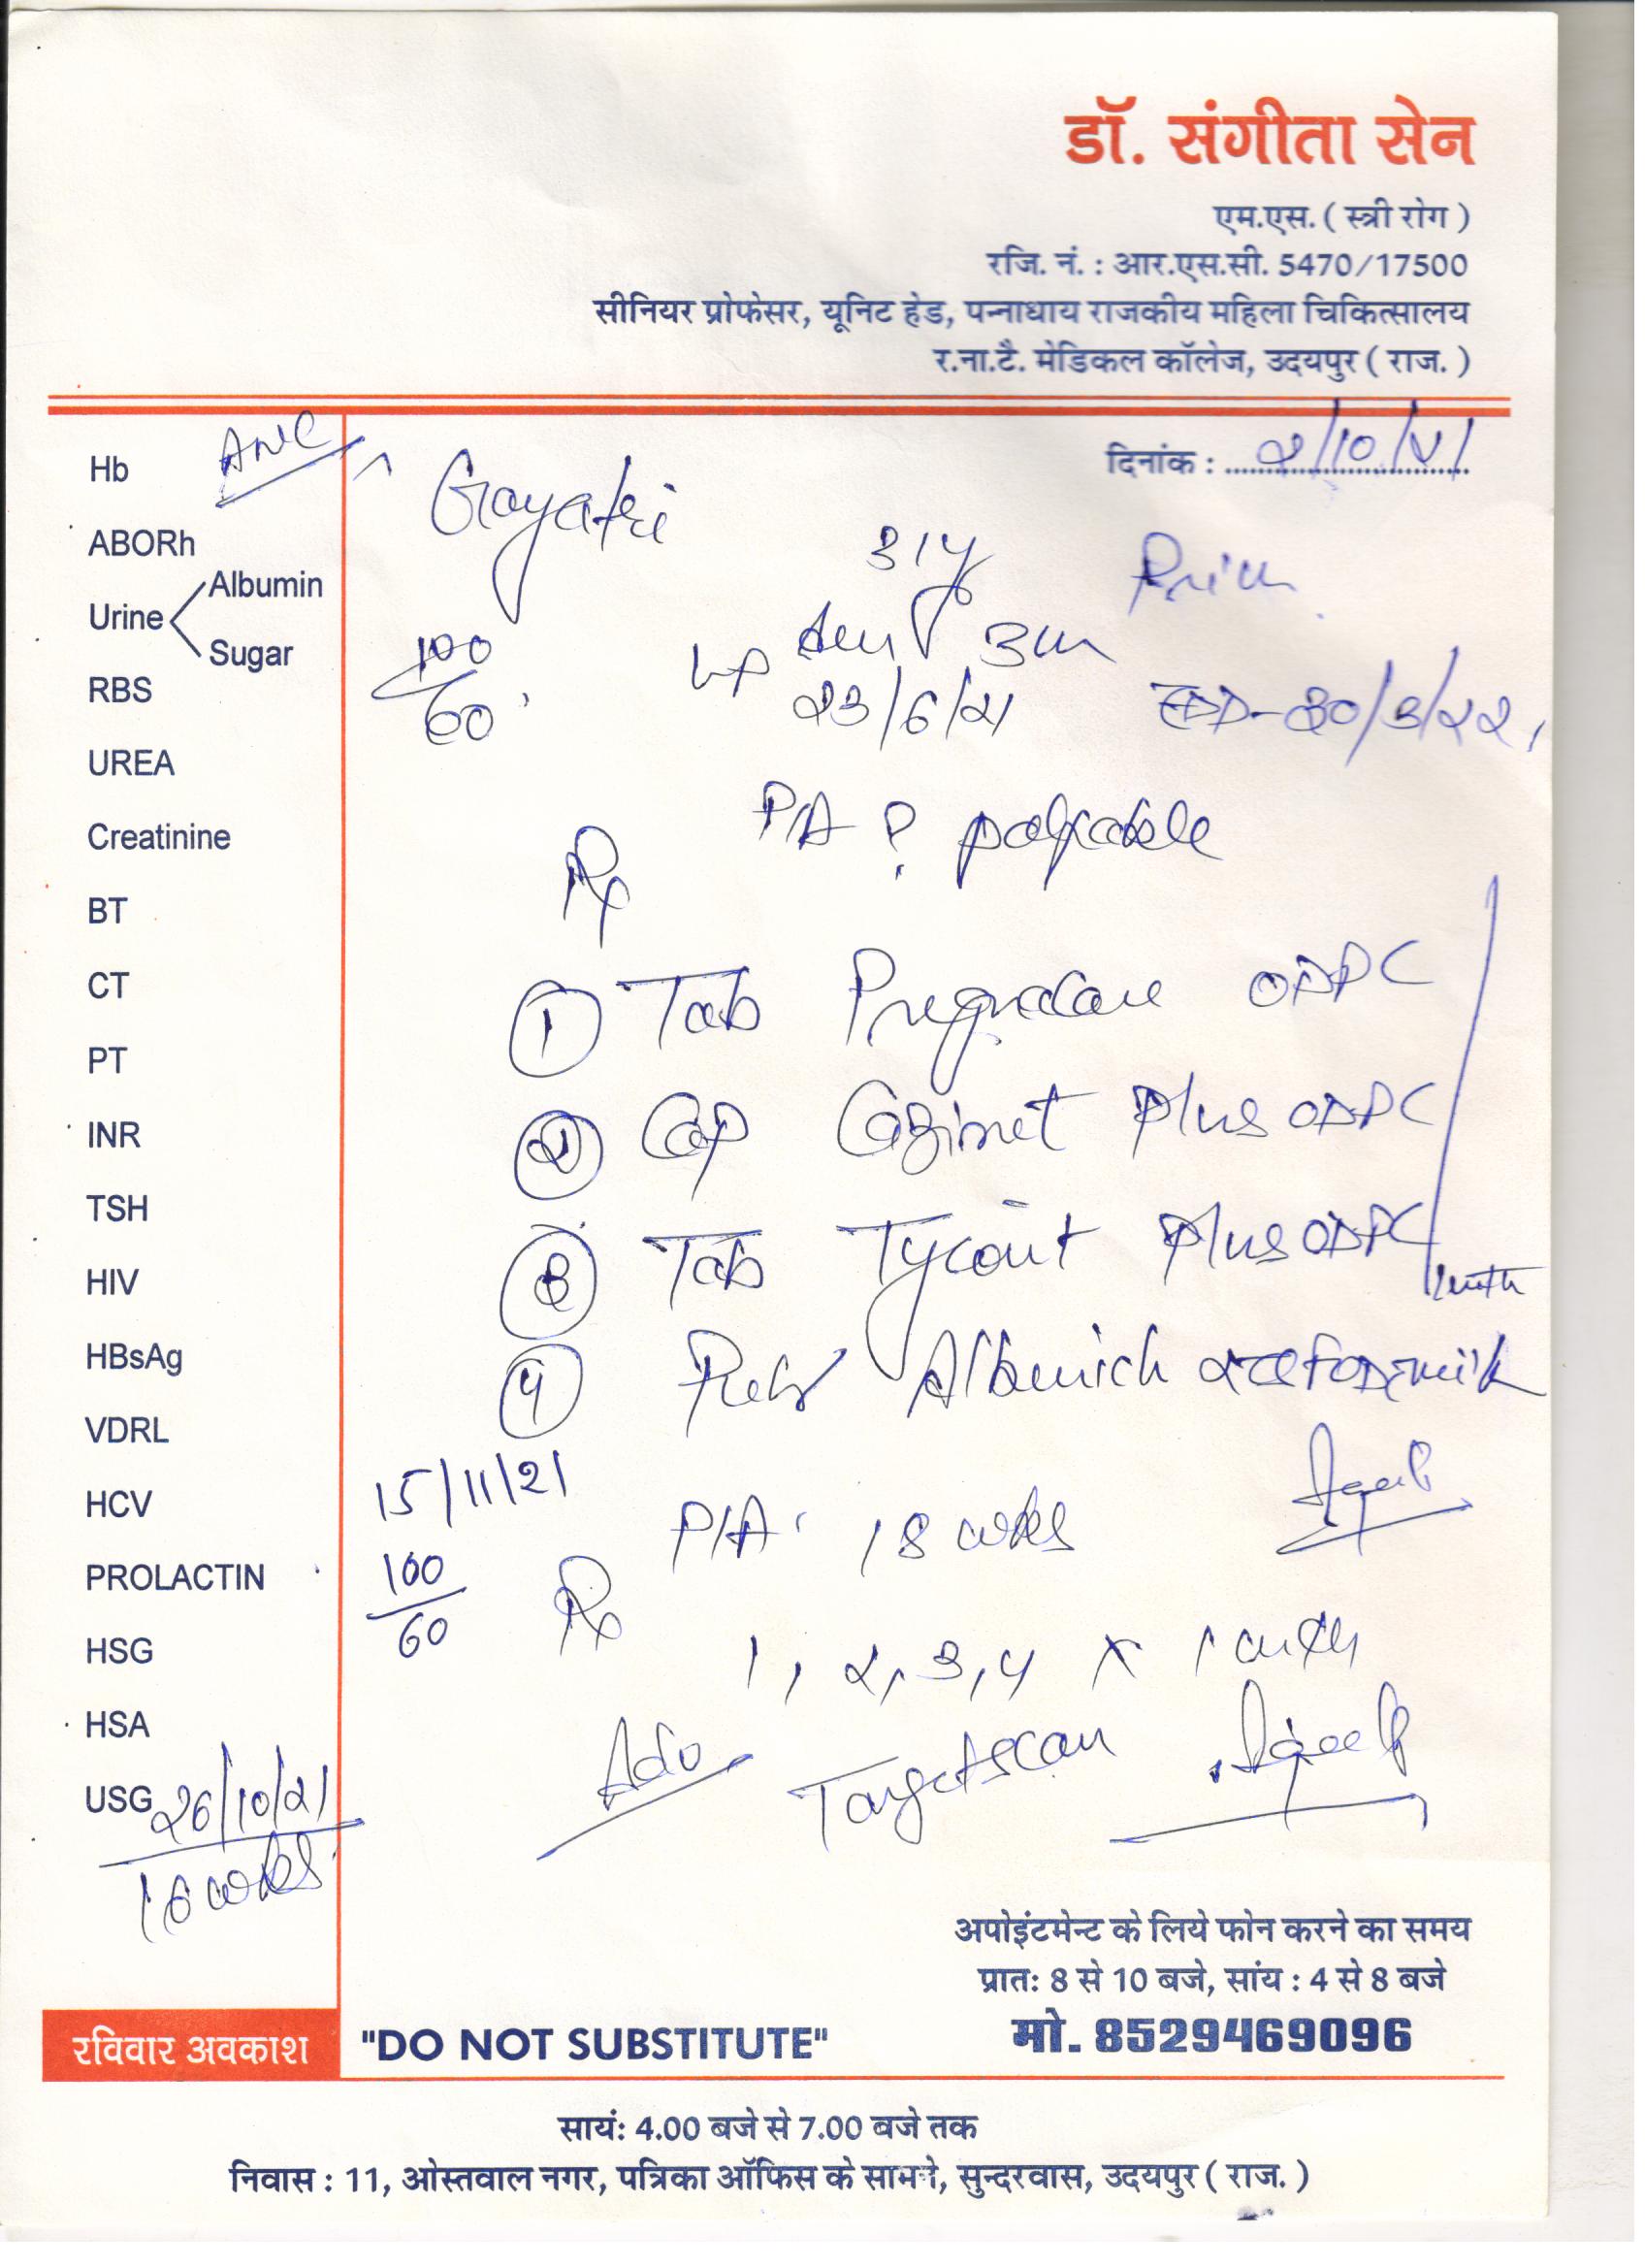 डॉ. संगीता सेन
एम.एस. ( स्त्री रोग )
रजि. नं. : आर.एस.सी. 5470/17500
सीनियर प्रोफेसर, यूनिट हेड, पन्नाधाय राजकीय महिला चिकित्सालय
र.ना.टै. मेडिकल कॉलेज, उदयपुर ( राज. )
दिनांक : 2/10/21
ANC
Gayatri
31y
3m
100/60
LP 23/6/21 EDD-30/3/22
P/A ? palpable
Rx
1 Tab Pregnacare OD PC
2 Cap Gezinet Plus OD PC
3 Tab Plus OD PC
1 mth
4 milk
15/11/21
P/A: 18 wks
100/60
Rx
1, 2, 3, 4 x 1 mth
Adv Target scan
Hb
ABORh
Urine
Albumin
Sugar
RBS
UREA
Creatinine
BT
CT
PT
INR
TSH
HIV
HBsAg
VDRL
HCV
PROLACTIN
HSG
HSA
USG 26/10/21
16 wks
अपोइंटमेन्ट के लिये फोन करने का समय
प्रातः 8 से 10 बजे, सांय : 4 से 8 बजे
मो. 8529469096
रविवार अवकाश
"DO NOT SUBSTITUTE"
सायं: 4.00 बजे से 7.00 बजे तक
निवास : 11, ओस्तवाल नगर, पत्रिका ऑफिस के सामने, सुन्दरवास, उदयपुर ( राज. )